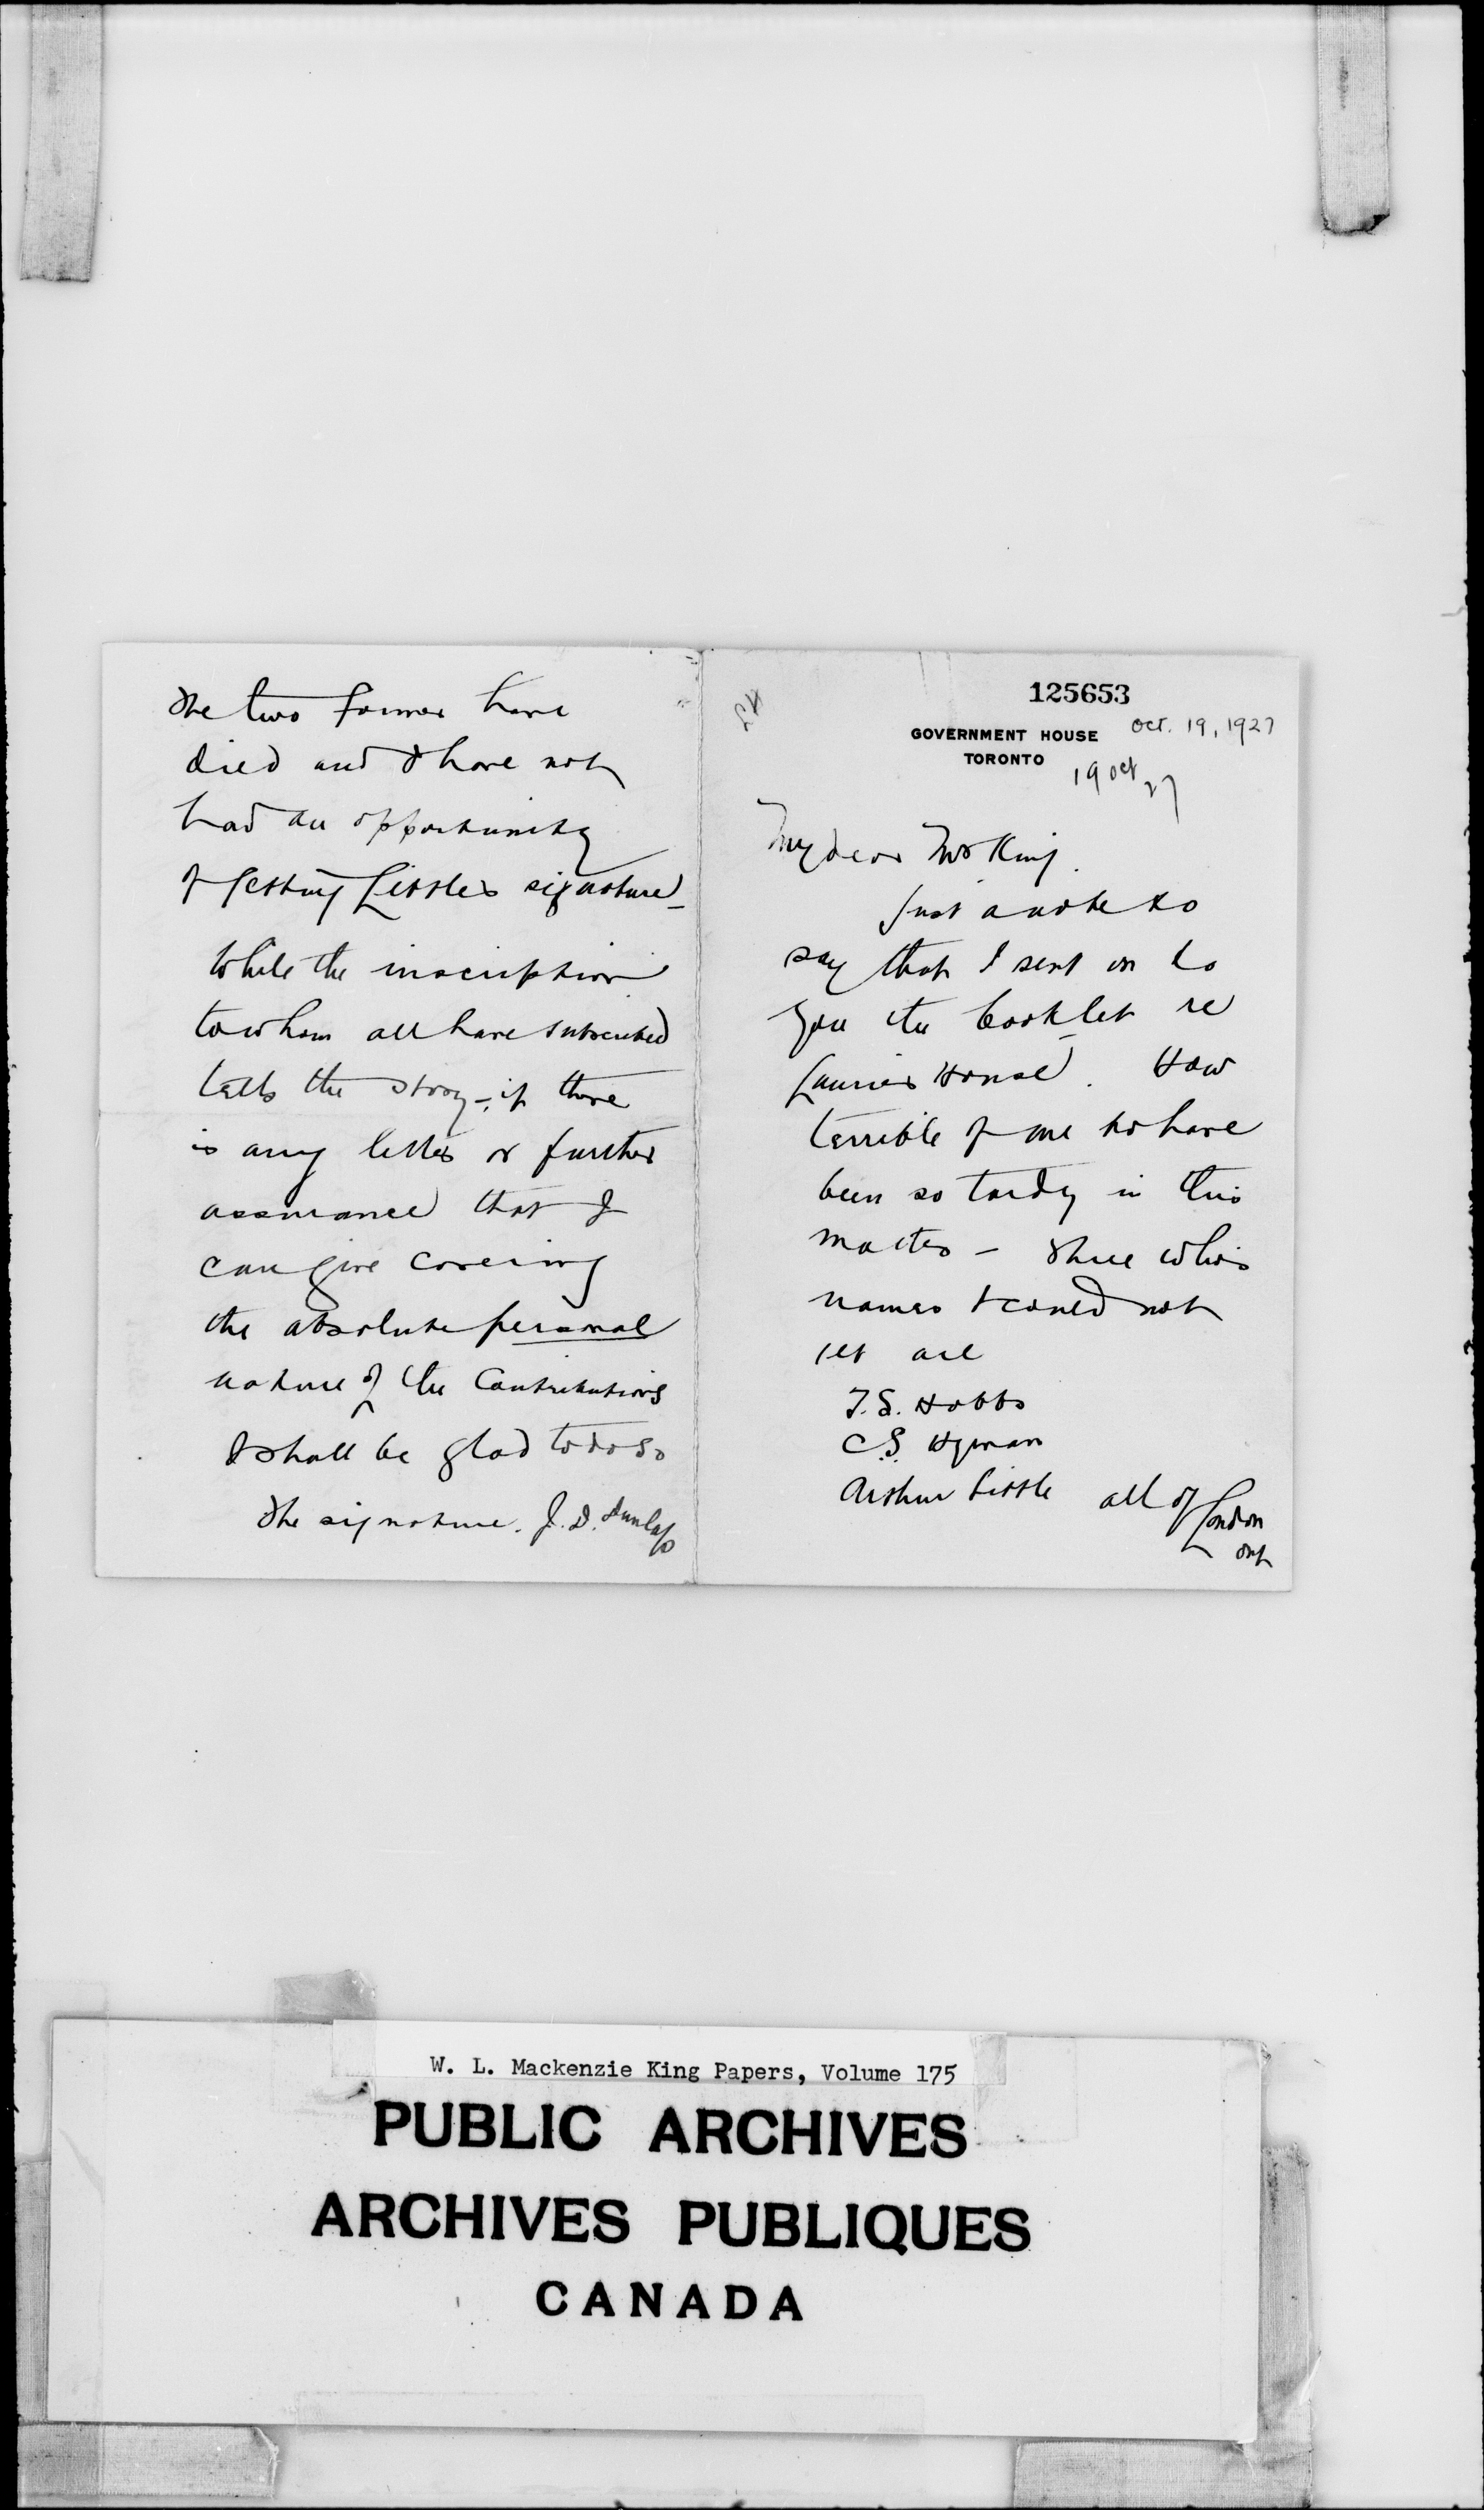 125653
GOVERNMENT HOUSE
TORONTO
Oct. 19, 1927
19 Oct 27
My dear Mr King.
Just a note to
say that I sent on to
you the booklet re
Laurier House. How
terrible of me to have
been so tardy in this
matter - Three whos
names I could not
get are
T.S. Hobbs
C.S. Hyman
Arthur Little all of London
Ont
The two former have
died and I have not
had an opportunity
of getting Little's signature -
While the inscription
to whom all have subscribed
tells the story - if there
is any letter or further
assurance that I
can give covering
the absolute personal
nature of the Contributions
I shall be glad to do so
The signature. J. D. Dunlap
W. L. Mackenzie King Papers, Volume 175
PUBLIC ARCHIVES
ARCHIVES PUBLIQUES
CANADA